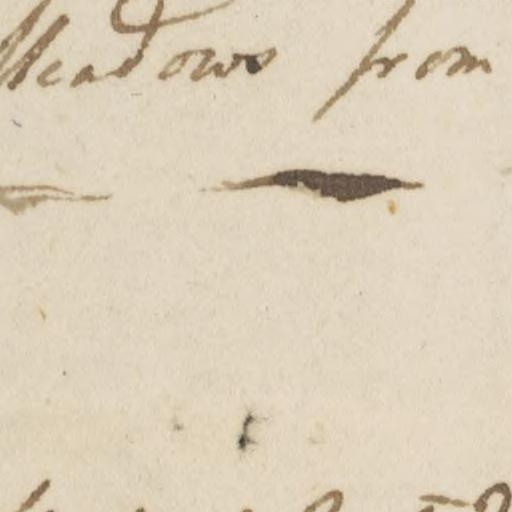 Meadows from